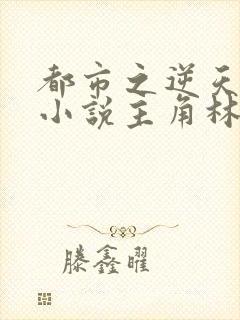 都市之逆天
小说主角林
滕鑫曜